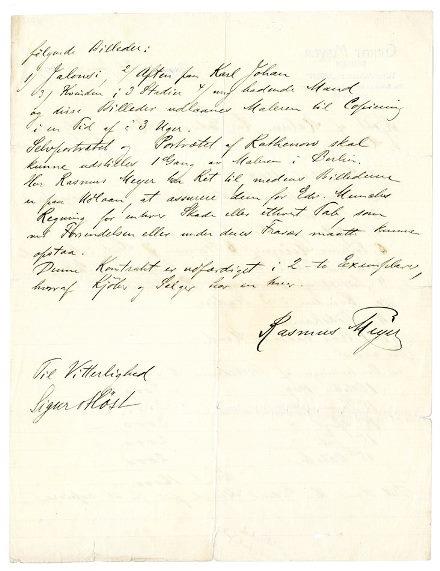 følgende Billeder:
1) Jalousi, 2) Aften paa Karl Johan
3) Kvinden i 3 Stadier 4) ung badende Mand
og disse Billeder udlaanes Maleren til Copiering
i en Tid af 3 Uger.
Selvportrættet og Portrættet af Rathenow skal
kunne udstilles 1 Gang av Maleren i Berlin.
Herr Rasmus Meyer har Ret til medens Billederne
er paa Udlaan at assurere dem for Edv. Munchs
Regning for enhver Skade eller ethvert Tab, som
ved Forsendelsen eller under deres Fravær maatte kunne
opstaa.
Denne Kontrakt er udfærdiget i 2 - to Exemplarer,
hvoraf Kjøber og Selger har en hver.
Rasmus Meyer
Til Vitterlighed
Sigurd Høst